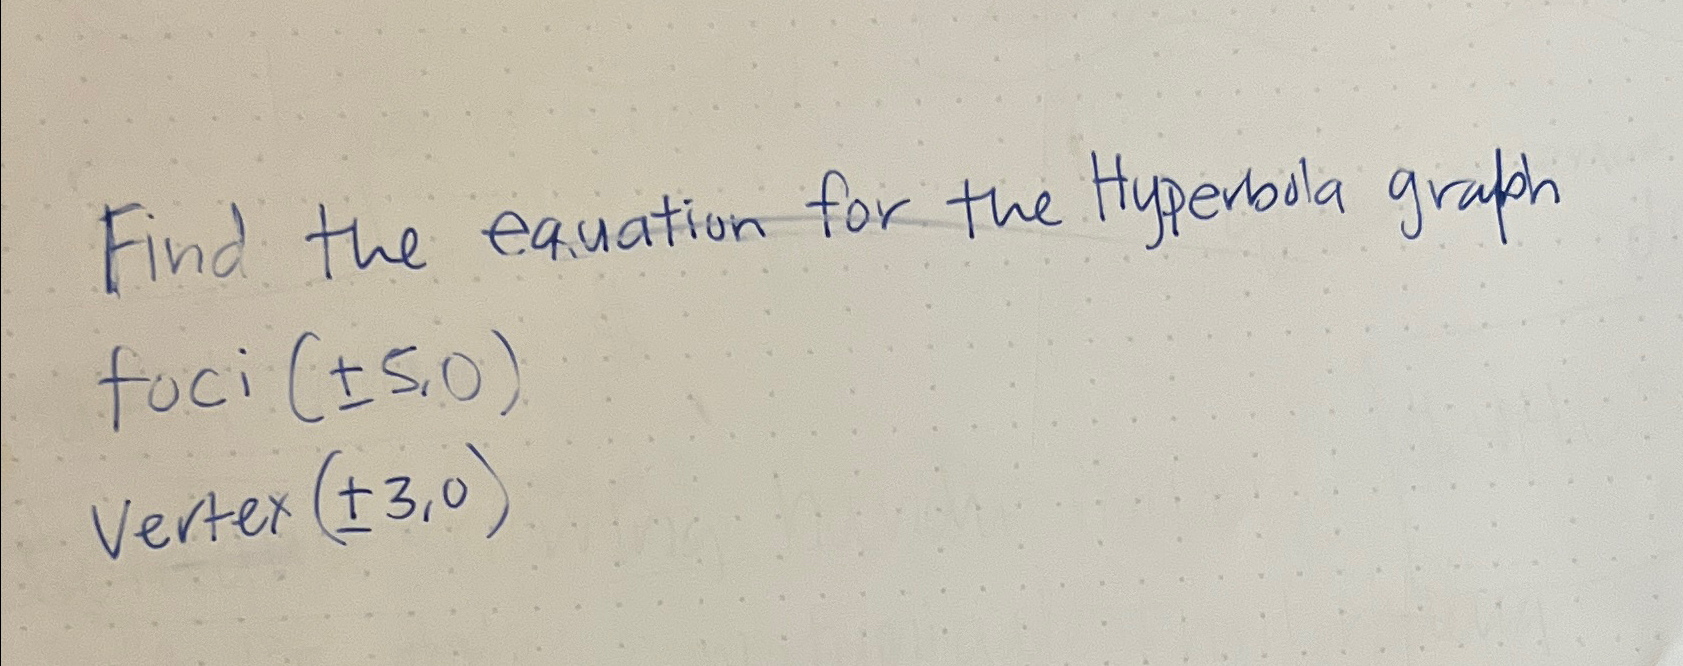 Find the equation for the Hyperbola graph
foci (±5,0)
Vertex (±3,0)